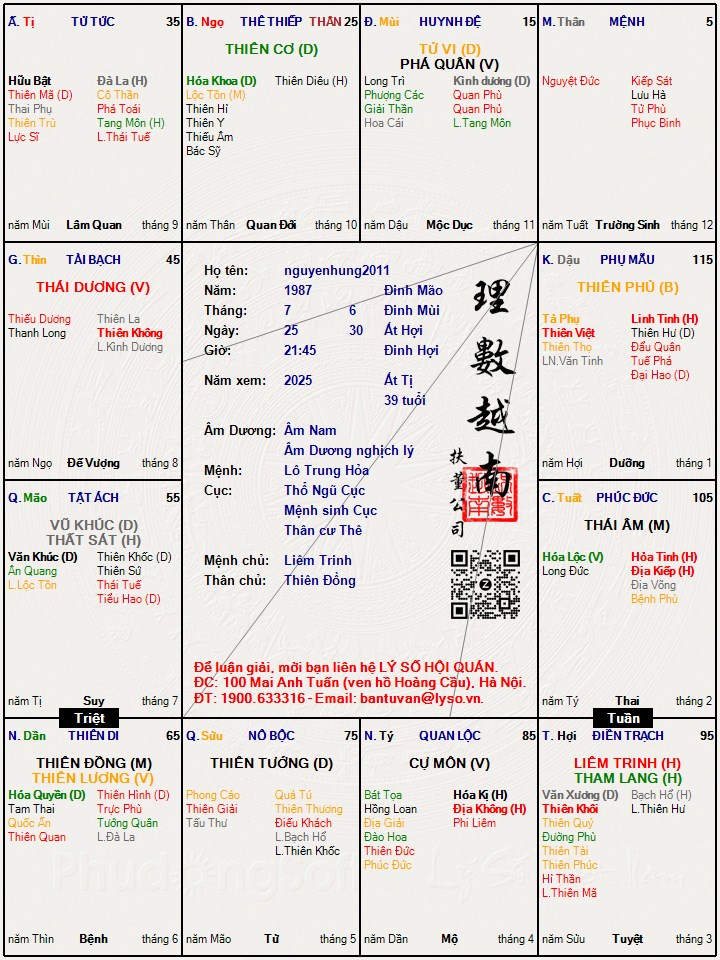 Ấ. Tị TỬ TỨC 35
Hữu Bật Đà La (H)
Thiên Mã (D) Cô Thần
Thai Phụ Phá Toái
Thiên Trù Tang Môn (H)
Lực Sĩ L.Thái Tuế
năm Mùi Lâm Quan tháng 9
B. Ngọ THÊ THIẾP THÂN 25
THIÊN CƠ (D)
Hóa Khoa (D) Thiên Diêu (H)
Lộc Tồn (M)
Thiên Hỉ
Thiên Y
Thiếu Âm
Bác Sỹ
năm Thân Quan Đới tháng 10
Đ. Mùi HUYNH ĐỆ 15
TỬ VI (D)
PHÁ QUÂN (V)
Long Trì Kình dương (D)
Phượng Các Quan Phù
Giải Thần Quan Phù
Hoa Cái L.Tang Môn
năm Dậu Mộc Dục tháng 11
M. Thân MỆNH 5
Nguyệt Đức Kiếp Sát
Lưu Hà
Tử Phù
Phục Binh
năm Tuất Trường Sinh tháng 12
G. Thìn TÀI BẠCH 45
THÁI DƯƠNG (V)
Thiếu Dương Thiên La
Thanh Long Thiên Không
L.Kình Dương
năm Ngọ Đế Vượng tháng 8
Họ tên: nguyenhung2011
Năm: 1987 Đinh Mão
Tháng: 7 6 Đinh Mùi
Ngày: 25 30 Ất Hợi
Giờ: 21:45 Đinh Hợi
Năm xem: 2025 Ất Tị
39 tuổi
Âm Dương: Âm Nam
Âm Dương nghịch lý
Mệnh: Lô Trung Hỏa
Cục: Thổ Ngũ Cục
Mệnh sinh Cục
Thân cư Thê
Mệnh chủ: Liêm Trinh
Thân chủ: Thiên Đồng
理數越南
扶董公司
Để luận giải, mời bạn liên hệ LÝ SỐ HỘI QUÁN.
ĐC: 100 Mai Anh Tuấn (ven hồ Hoàng Cầu), Hà Nội.
ĐT: 1900.633316 - Email: bantuvan@lyso.vn.
K. Dậu PHỤ MẪU 115
THIÊN PHỦ (B)
Tả Phụ Linh Tinh (H)
Thiên Việt Thiên Hư (D)
Thiên Thọ Đẩu Quân
LN.Văn Tinh Tuế Phá
Đại Hao (D)
năm Hợi Dưỡng tháng 1
Q. Mão TẬT ÁCH 55
VŨ KHÚC (D)
THẤT SÁT (H)
Văn Khúc (D) Thiên Khốc (D)
Ân Quang Thiên Sứ
L.Lộc Tồn Thái Tuế
Tiểu Hao (D)
năm Tị Suy tháng 7
C. Tuất PHÚC ĐỨC 105
THÁI ÂM (M)
Hóa Lộc (V) Hỏa Tinh (H)
Long Đức Địa Kiếp (H)
Địa Võng
Bệnh Phù
năm Tý Thai tháng 2
Triệt
Tuần
N. Dần THIÊN DI 65
THIÊN ĐỒNG (M)
THIÊN LƯƠNG (V)
Hóa Quyền (D) Thiên Hình (D)
Tam Thai Trực Phù
Quốc Ấn Tướng Quân
Thiên Quan L.Đà La
năm Thìn Bệnh tháng 6
Q. Sửu NÔ BỘC 75
THIÊN TƯỚNG (D)
Phong Cáo Quả Tú
Thiên Giải Thiên Thương
Tấu Thư Điếu Khách
L.Bạch Hổ
L.Thiên Khốc
năm Mão Tử tháng 5
N. Tý QUAN LỘC 85
CỰ MÔN (V)
Bát Tọa Hóa Kị (H)
Hồng Loan Địa Không (H)
Địa Giải Phi Liêm
Đào Hoa
Thiên Đức
Phúc Đức
năm Dần Mộ tháng 4
T. Hợi ĐIỀN TRẠCH 95
LIÊM TRINH (H)
THAM LANG (H)
Văn Xương (D) Bạch Hổ (H)
Thiên Khôi L.Thiên Hư
Thiên Quý
Đường Phù
Thiên Tài
Thiên Phúc
Hỉ Thần
L.Thiên Mã
năm Sửu Tuyệt tháng 3